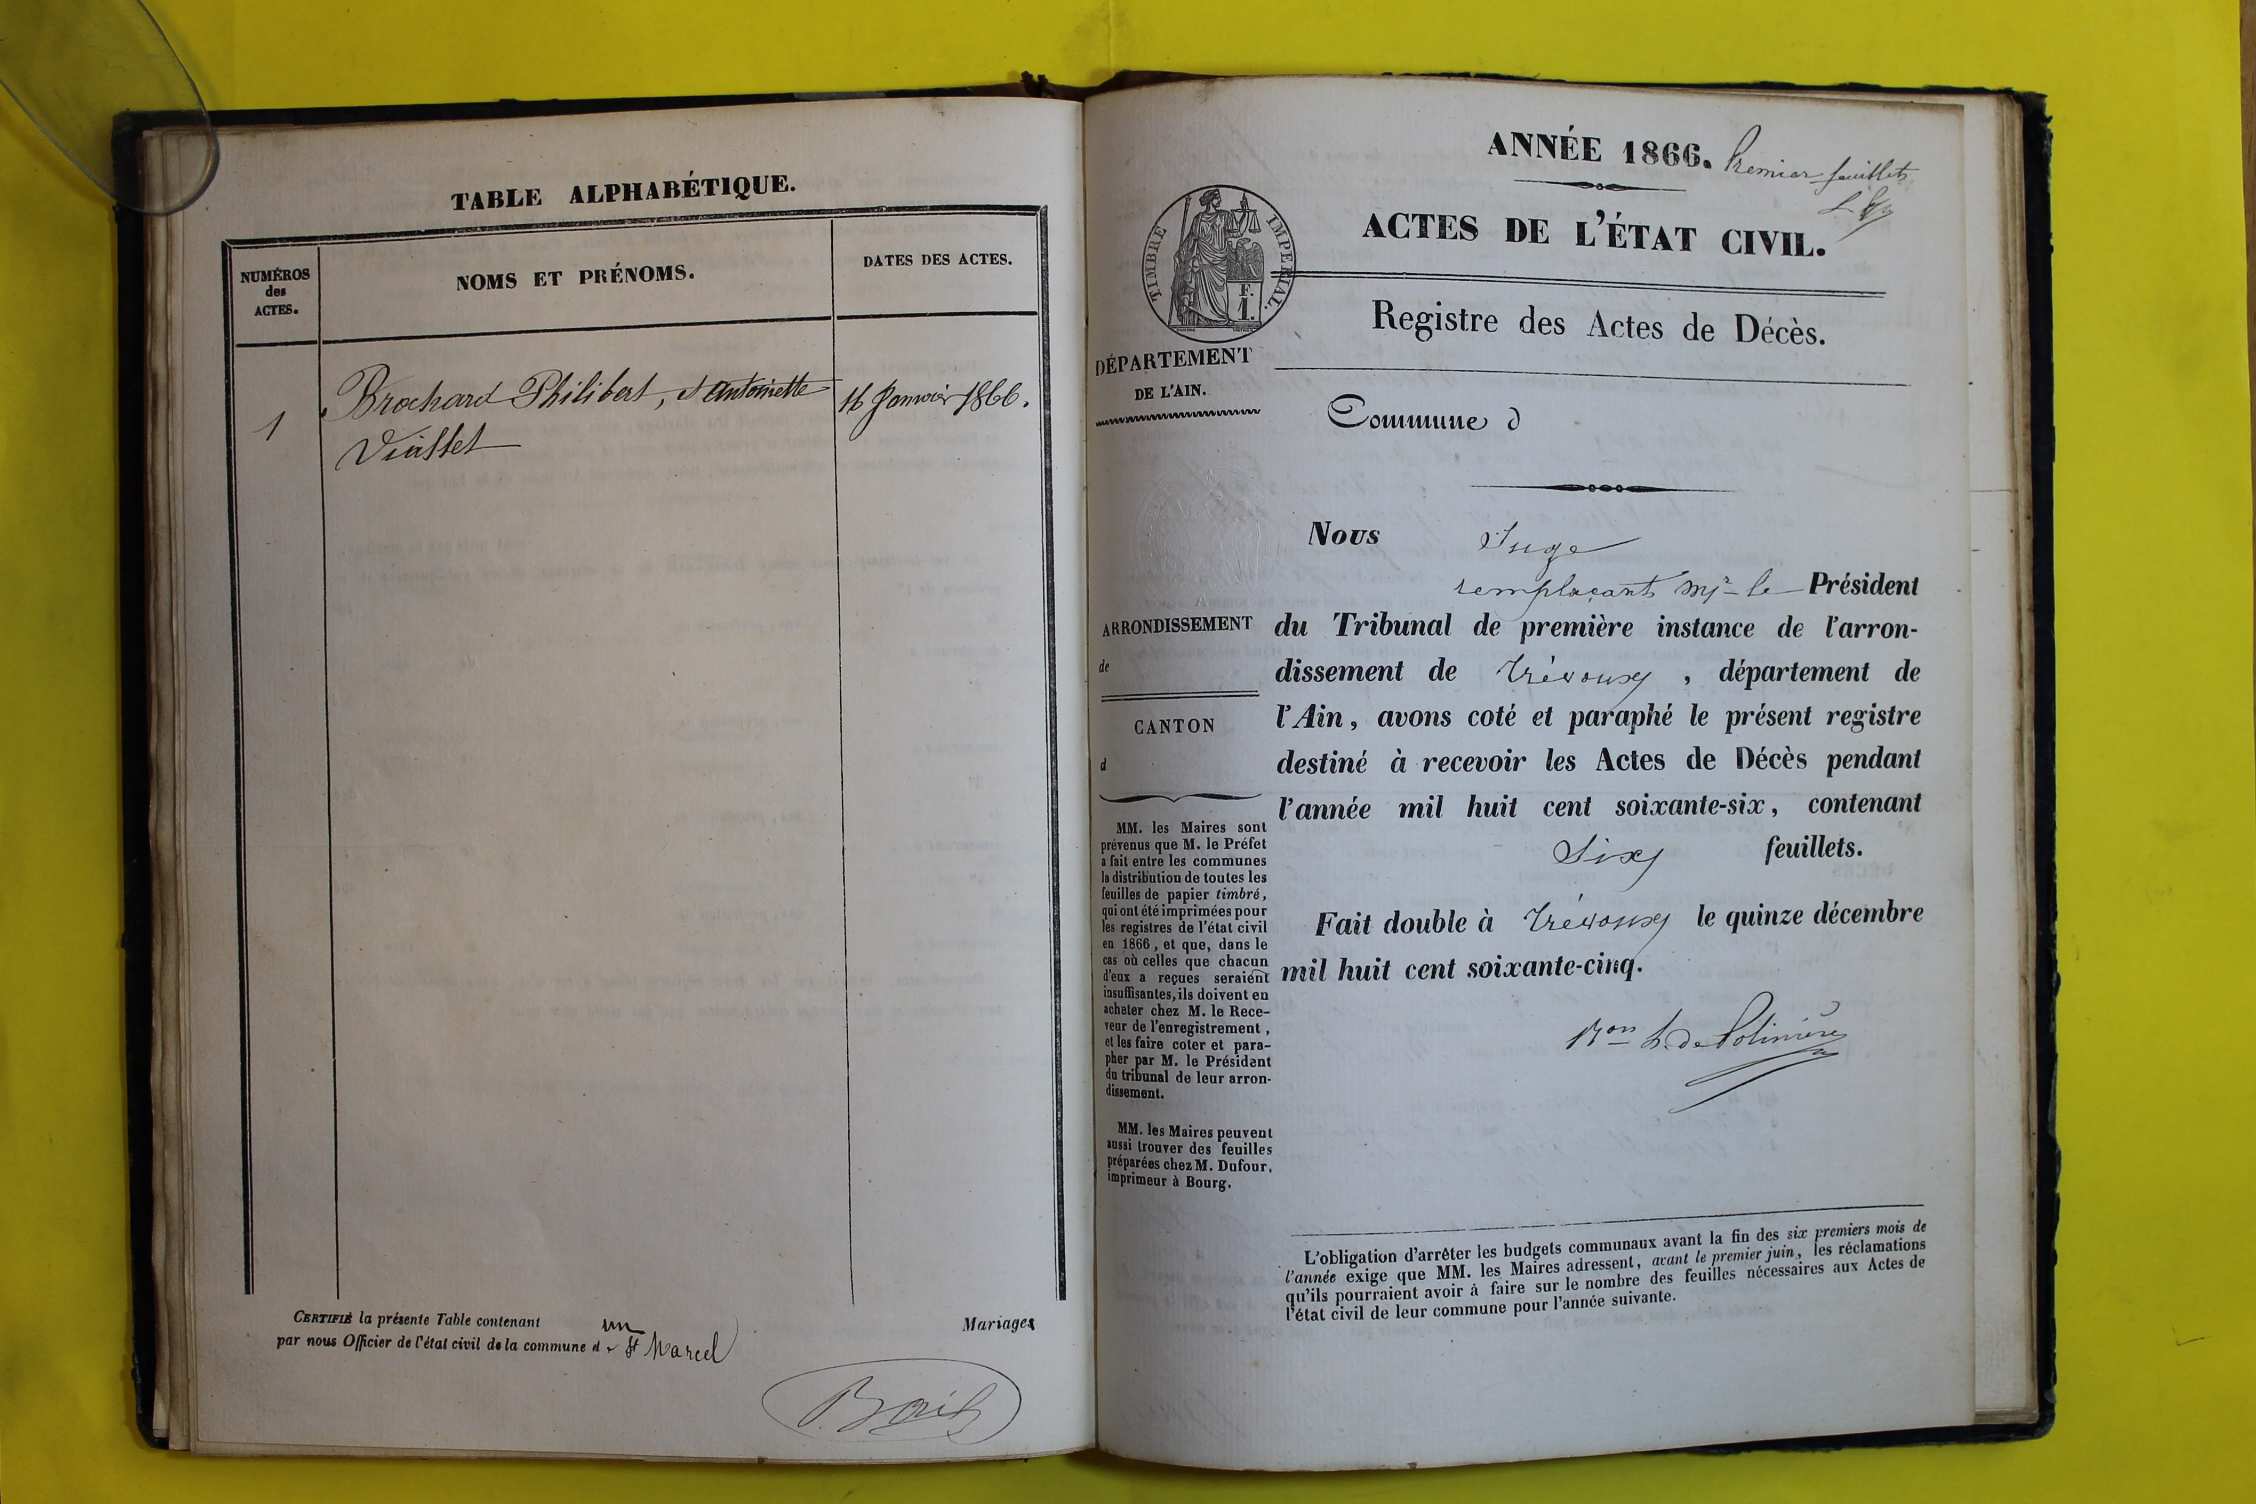 TABLE ALPHABÉTIQUE.
NUMÉROS
des
ACTES.
NOMS ET PRÉNOMS.
DATES DES ACTES.
1
Brochard Philibert, et Antoinette
Viallet
16 Janvier 1866.
CERTIFIÉ la présente Table contenant un Mariages
par nous Officier de l'état civil de la commune de St Marcel
ANNÉE 1866.
Premier feuillet
ACTES DE L'ÉTAT CIVIL.
TIMBRE IMPERIAL.
F.
1.
Registre des Actes de Décès.
DÉPARTEMENT
DE L'AIN.
Commune d
Nous Juge
remplaçant Mr le Président
du Tribunal de première instance de l'arron-
dissement de Trévoux, département de
l'Ain, avons coté et paraphé le présent registre
destiné à recevoir les Actes de Décès pendant
l'année mil huit cent soixante-six, contenant
Six feuillets.
Fait double à Trévoux le quinze décembre
mil huit cent soixante-cinq.
Bon h. de Polinière
ARRONDISSEMENT
de
CANTON
d
MM. les Maires sont
prévenus que M. le Préfet
a fait entre les communes
la distribution de toutes les
feuilles de papier timbré,
qui ont été imprimées pour
les registres de l'état civil
en 1866, et que, dans le
cas où celles que chacun
d'eux a reçues seraient
insuffisantes, ils doivent en
acheter chez M. le Rece-
veur de l'enregistrement,
et les faire coter et para-
pher par M. le Président
du tribunal de leur arron-
dissement.
MM. les Maires peuvent
aussi trouver des feuilles
préparées chez M. Dufour,
imprimeur à Bourg.
L'obligation d'arrêter les budgets communaux avant la fin des six premiers mois de
l'année exige que MM. les Maires adressent, avant le premier juin, les réclamations
qu'ils pourraient avoir à faire sur le nombre des feuilles nécessaires aux Actes de
l'état civil de leur commune pour l'année suivante.